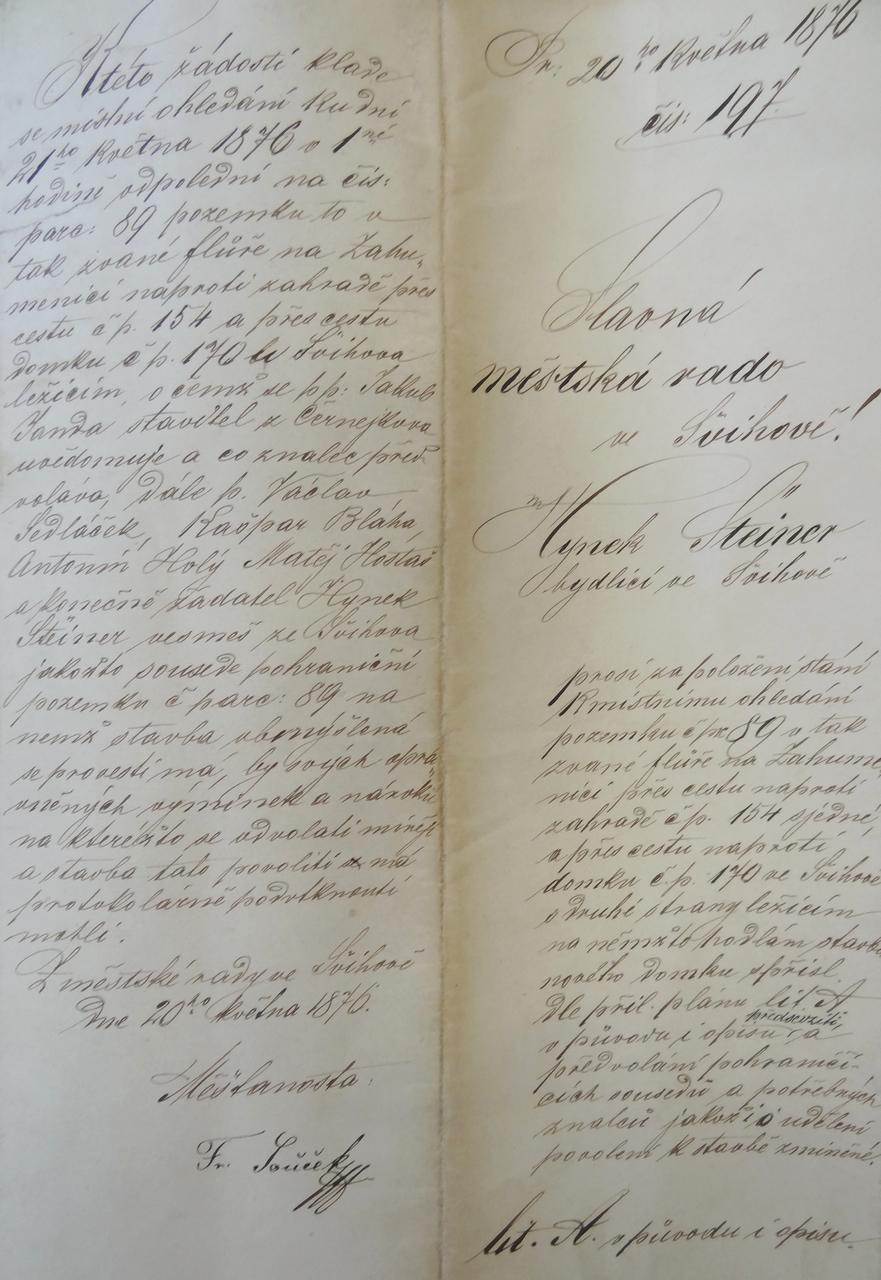 K této žádosti klade
se místní ohledání ku dni
21ho Května 1876 o 1né
hodině odpolední na čís:
parc: 89 pozemku to v
tak zvané flůře na Zahu„
menici naproti zahradě přes
cestu č p. 154 a přes cestu
domku č p. 170 Švihova
ležícím, o čemž se pp: Jakub
Janda stavitel z Černejkova
uvědomuje a co znalec před„
volává, Dále p. Václav
Sedláček, Kašpar Bláha,
Antonín Holý Matěj Hostaš
a konečně žadatel Hynek
Steiner vesměs ze Švihova
jakožto sousede pohraniční
pozemku č parc: 89 na
nemž stavba obmýšlená
se provesti má, by svých opra„
vněných výminek a nároků
na kteréžto se odvolati míněj
a stavba tato povoliti má
protokolárně podotknouti
mohli.
Z městské rady ve Švihově
Dne 20ho Května 1876.
Měšťanosta:
Fr. Souček
Pr: 20ho Května 1876
čís: 197.
Slavná
městská rado
ve Švihově!
Hynek Steiner
bydlící ve Švihově
prosí za položení stání
K místnímu ohledání
pozemku č pr 89 v tak
zvané flůře na Zahume„
nici přes cestu naproti
zahradě č p. 154 s jedné,
a přes cestu naproti
domku č. p. 170 ve Švihově
s druhé strany ležícím
na němžto hodlám stavbu
nového domku s přísl.
Dle příl. plánu lit. A
v původu i opisu předsevzíti, a
předvolání pohraničí-
cích sousedů a potřebných
znalců jakož i o udělení
povolení k stavbě zmíněné.
lit. A. v původu i opisu.